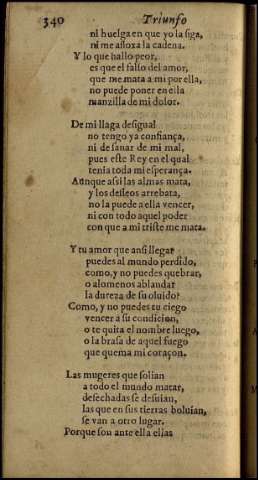 340 Triunfo
ni huelga en que yo la siga,
ni me afloxa la cadena.
Y lo que hallo peor,
es que el falso del amor,
que me mata a mi por ella,
no puede poner en ella
manzilla de mi dolor.
De mi llaga desigual
no tengo ya confiança,
ni de sanar de mi mal,
pues este Rey en el qual
tenia toda mi esperança.
Aunque assi las almas mata,
y los desseos arrebata,
no la puede a ella vencer,
ni con todo aquel poder
con que a mi triste me mata.
Y tu amor que ansi llegar
puedes al mundo perdido,
como, y no puedes quebrar,
o alomenos ablandar
la dureza de su oluido?
Como, y no puedes tu ciego
vencer a su condicion,
o te quita el nombre luego,
o la brasa de aquel fuego
que quema mi coraçon.
Las mugeres que solian
a todo el mundo matar,
desechadas se desuian,
las que en sus tierras boluian,
se van a otro lugar.
Porque son ante ella ellas